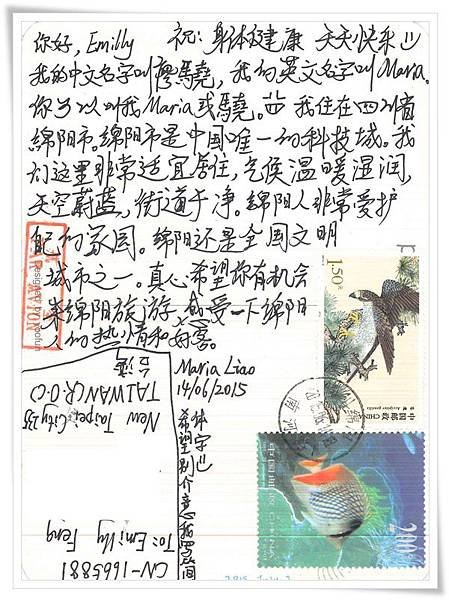 你好, Emilly 祝: 身体健康 天天快乐
我的中文名字叫廖驍, 我的英文名字叫Maria.
你可以叫我Maria或驍。 我住在四川省
綿阳市。綿阳市是中国唯一的科技城。我
们这里非常适宜居住, 气候温暖湿润,
天空蔚蓝, 街道干净。绵阳人非常爱护
自己的家园。绵阳还是全国文明
城市之一。真心希望你有机会
来绵阳旅游, 感受一下绵阳
人的热情和好客。
Maria Liao
14/06/2015
希望别介意我写简
体字
CN-1665881
To: Emilly Feng
New Taipei City 235
TAIWAN (R.O.C)
台灣
1.50元
中国邮政 CHINA
中国邮政 CHINA
200